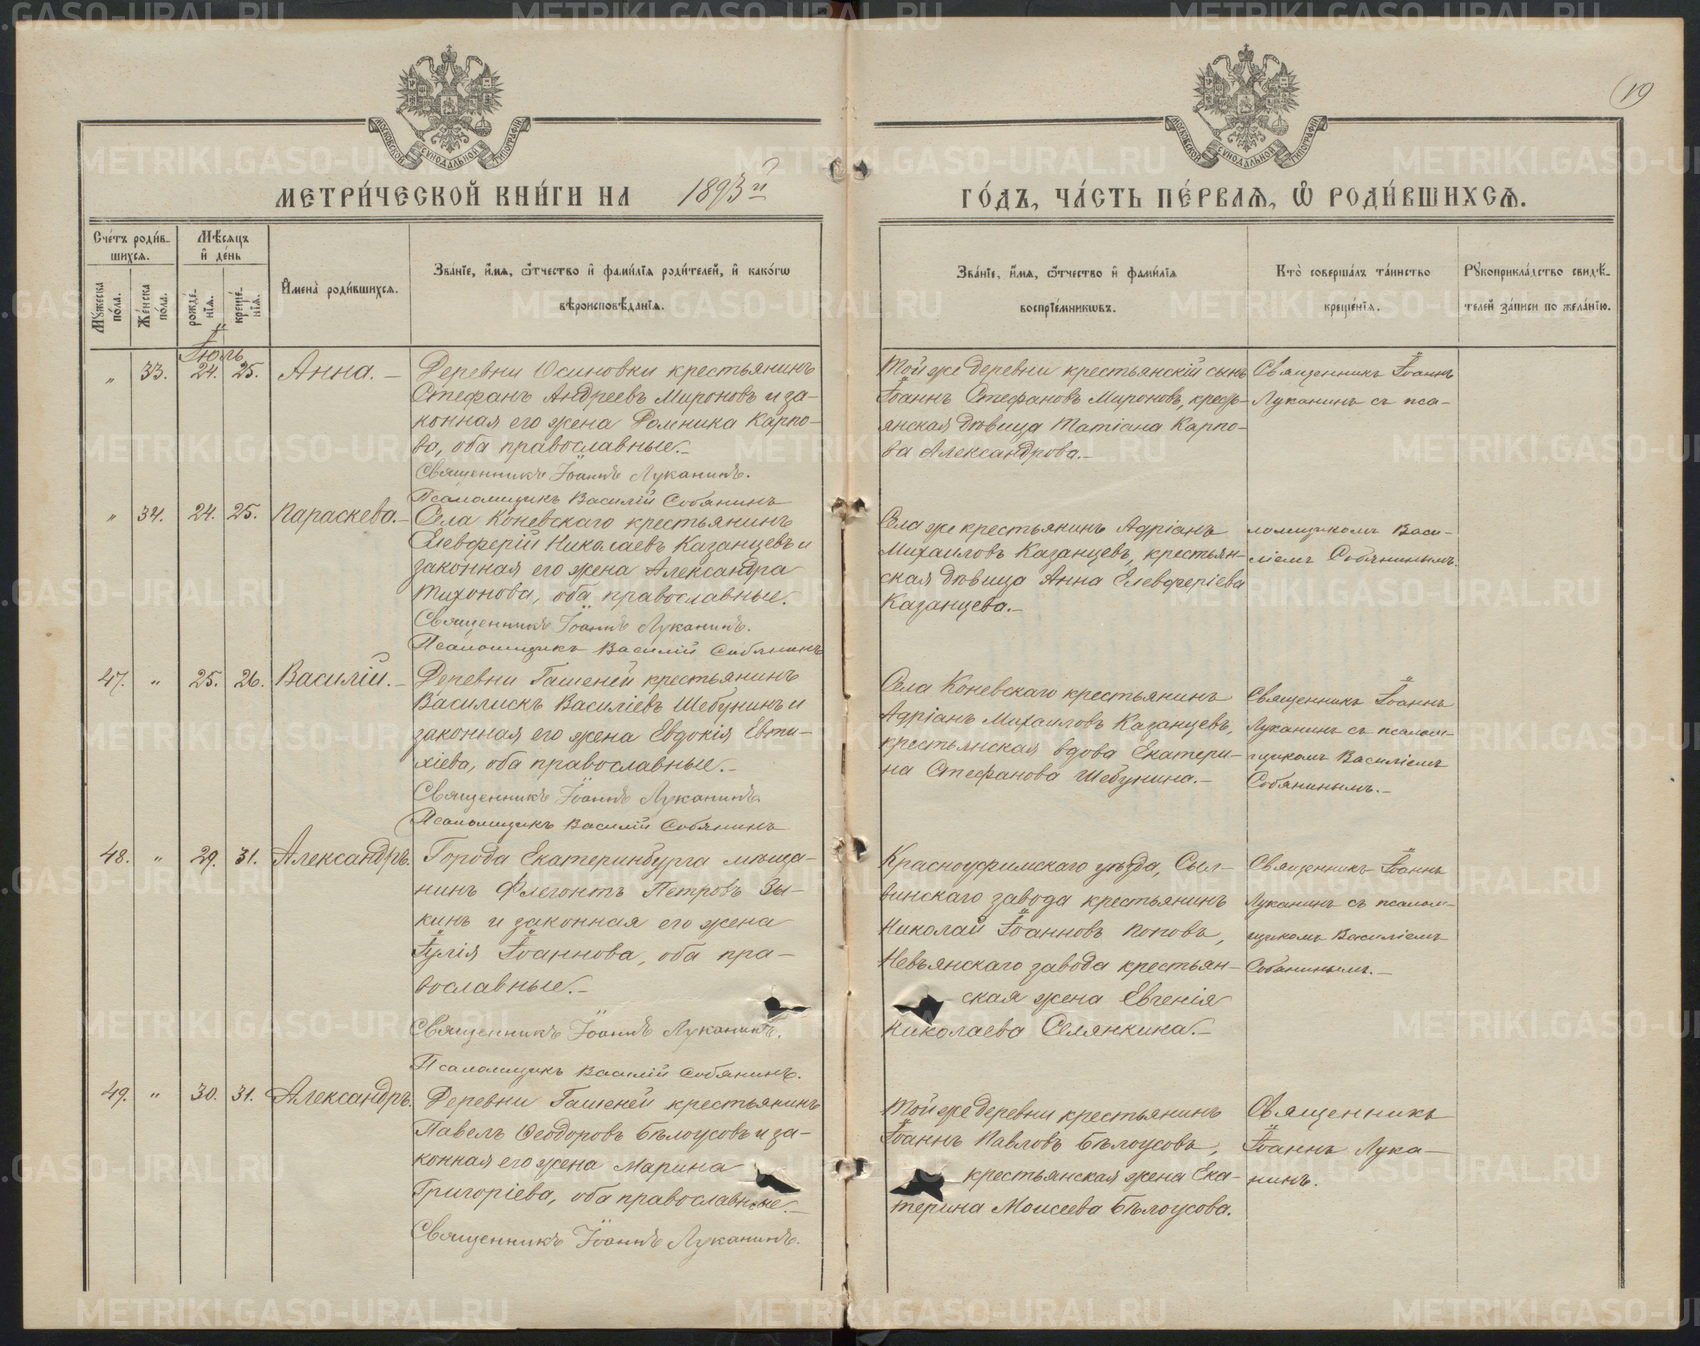 19
МЕТРИ́ЧЕСКОЙ КНИ́ГИ НА 1893й ГО́ДЪ, ЧА́СТЬ ПЕ́РВАѦ, Ѡ РОДИ́ВШИХСѦ.
Сче́тъ роди́в-
шихсѧ.
Мꙋ́жеска по́ла.
Же́нска по́ла.
Мѣ́сѧцъ
и де́нь
рожде́-
нїѧ.
креще́-
нїѧ.
Имена̀ роди́вшихсѧ.
Зва́нїе, и́мѧ, ѻ́тчество и фами́лїѧ роди́телей, и како́гѡ
вѣроисповѣ́данїѧ.
Зва́нїе, и́мѧ, ѻ́тчество и фами́лїѧ
воспрїе́мникѡвъ.
Кто̀ соверша́лъ та́инство
креще́нїѧ.
Рꙋкоприкла́дство свидѣ́-
телей за́писи по жела́нїю.
Іюль
" 33. 24. 25. Анна. —
Деревни Осиновки крестьянинъ
Стефанъ Андреевъ Мироновъ и за-
конная его жена Домника Карпо-
ва, оба православные. —
Священникъ Іоаннъ Луканинъ.
Псаломщикъ Василій Собянинъ
Той же деревни крестьянскій сынъ
Іоаннъ Стефановъ Мироновъ, кресть-
янская дѣвица Татіана Карпо-
ва Александрова. —
Священникъ Іоаннъ
Луканинъ съ пса-
" 34. 24. 25. Параскева. —
Села Коневскаго крестьянинъ
Елевферій Николаевъ Казанцевъ и
законная его жена Александра
Тихонова, оба православные.
Священникъ Іоаннъ Луканинъ.
Псаломщикъ Василій Собянинъ
Села же крестьянинъ Адріанъ
Михаиловъ Казанцевъ, крестьян-
ская дѣвица Анна Елевферіева
Казанцева. —
ломщикомъ Васи-
ліемъ Собянинымъ.
47. " 25. 26. Василій. —
Деревни Гашеней крестьянинъ
Василискъ Василіевъ Шебунинъ и
законная его жена Евдокія Евти-
хіева, оба православные. —
Священникъ Іоаннъ Луканинъ.
Псаломщикъ Василій Собянинъ
Села Коневскаго крестьянинъ
Адріанъ Михаиловъ Казанцевъ,
крестьянская вдова Екатери-
на Стефанова Шебунина. —
Священникъ Іоаннъ
Луканинъ съ псалом-
щикомъ Василіемъ
Собянинымъ. —
48. " 29. 31. Александръ.
Города Екатеринбурга мѣща-
нинъ Флегонтъ Петровъ Зы-
кинъ и законная его жена
Іулія Іоаннова, оба пра-
вославные. —
Священникъ Іоаннъ Луканинъ.
Псаломщикъ Василій Собянинъ.
Красноуфимскаго уѣзда, Сыл-
винскаго завода крестьянинъ
Николай Іоанновъ Поповъ,
Невьянскаго завода крестьян-
ская жена Евгенія
Николаева Селянкина. —
Священникъ Іоаннъ
Луканинъ съ псалом-
щикомъ Василіемъ
Собянинымъ. —
49. " 30. 31. Александръ.
Деревни Гашеней крестьянинъ
Павелъ Ѳеодоровъ Бѣлоусовъ и за-
конная его жена Марина
Григоріева, оба православные. —
Священникъ Іоаннъ Луканинъ.
Той же деревни крестьянинъ
Іоаннъ Павловъ Бѣлоусовъ,
крестьянская жена Ека-
терина Моисеева Бѣлоусова.
Священникъ
Іоаннъ Лука-
нинъ.